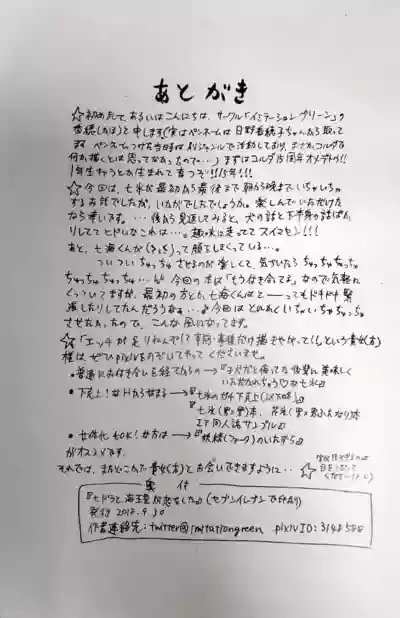 あとがき
☆初めまして、あるいはこんにちは、サークル「イミテーショングリーン」の
香穂(かほ)と申します(実はペンネームは日野香穂子ちゃんから取って
ます ペンネームつけた当時は別ジャンルで活動しており、まさかコルダで
何か描くとは思ってなかったので…)まずはコルダ15周年オメデトウ!!
1年生わっとか生まれて育つぞ!!15年!!!
☆今回は、七氷が最初から最後まで朝から晩まで、いちゃいちゃ
するお話でしたが、いかがでしたでしょうか。楽しんでいただけた
なら幸いです。…後から見返してみると、犬の話と下半身の話ばか
りしててヒドいなこれは…。趣味に走っててスイマセン!!!
あと、七海くんが って顔してなくている…。
ついついちゅっちゅさせるのが楽しくて、気がついたらちゅっちゅちゅっちゅ
ちゅっちゅちゅっちゅ… 今回の本は「もう付き合ってる」なので気軽に
くっついてますが、最初の方とか七海くんはと――ってもドキドキ緊
張したりしてたんだろうなぁ…♪今回はとにかくいちゃいちゃちゅっちゅ
させたかったので、こんな風になってます。
☆「エッチが足りねえんだ!事前・事後だけ描きやがって!」という貴女(方)
様は、ぜひpixivをのぞいてやってくださいませ。
・普通にお付き合いを経てからの→『子犬だと侮ってた後輩に美味しく
いただかれちゃう♡な七氷』
・下克上!なHからはじまる→『七氷のガチ下克上
『七氷(
エア同人誌サンプル』
・女体化もOK!な方は→『妖精(ファータ)のいたずら』
がオススメです。
それでは、またどこかで貴女(方)とお会いできますように…☆
奥付
『七ドラと海王星が恋をした』(セブンイレブンで印刷)
発行 2018.9.30
作者連絡先:twitter@imitationgreen pixivID:3148588